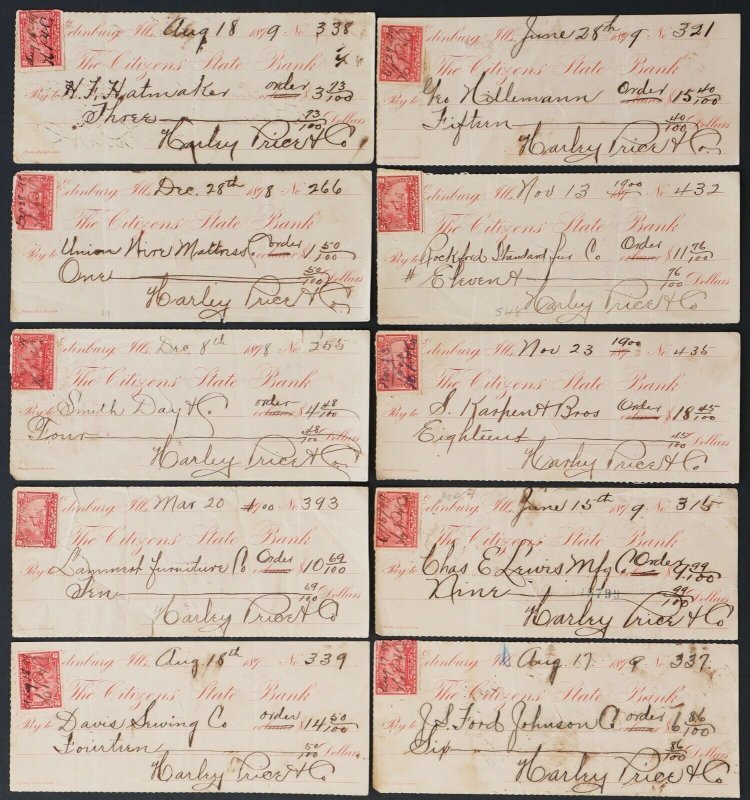 Edinburg Ills. Aug 18 1899 No 338
The Citizens' State Bank
Pay to H. F. Hatmaker order or bearer $3 73/100
Three 73/100 Dollars
Harley Price & Co
Edinburg Ills. Dec. 28th 1898 No 266
The Citizens' State Bank
Pay to Union Wire Mattress Co order or bearer $1 50/100
One 50/100 Dollars
Harley Price & Co
Edinburg Ills. Dec 8th 1898 No 255
The Citizens' State Bank
Pay to Smith Day & Co order or bearer $4 48/100
Four 48/100 Dollars
Harley Price & Co
Edinburg Ills. Mar 20 1900 No 393
The Citizens' State Bank
Pay to Lammert furniture Co Order or bearer $10 69/100
Ten 69/100 Dollars
Harley Price & Co
Edinburg Ills. Aug 18th 189 No 339
The Citizens' State Bank
Pay to Davis Sewing Co order or bearer $14 50/100
Fourteen 50/100 Dollars
Harley Price & Co
Edinburg Ills. June 28th 1899 No 321
The Citizens' State Bank
Pay to Geo Nillemann Order or bearer $15 40/100
Fifteen 40/100 Dollars
Harley Price & Co
Edinburg Ills. Nov 13 1900 189 No 432
The Citizens' State Bank
Pay to Rockford Standard fur Co Order or bearer $11 76/100
# Eleven & 76/100 Dollars
548 Harley Price & Co
Edinburg Ills. Nov 23 1900 189 No 435
The Citizens' State Bank
Pay to S. Karpen & Bros Order or bearer $18 45/100
Eighteen 45/100 Dollars
Harley Price & Co
Edinburg Ills. June 15th 1899. No 315
The Citizens' State Bank
Pay to Chas E Lewis Mfg Co Order or bearer $9.99/100
Nine 99/100 Dollars
Harley Price & Co
Edinburg Aug 17 1899 No 337
The Citizens' State Bank
Pay to J. S. Ford Johnson Co order or bearer $6 86/100
Six 86/100 Dollars
Harley Price & Co